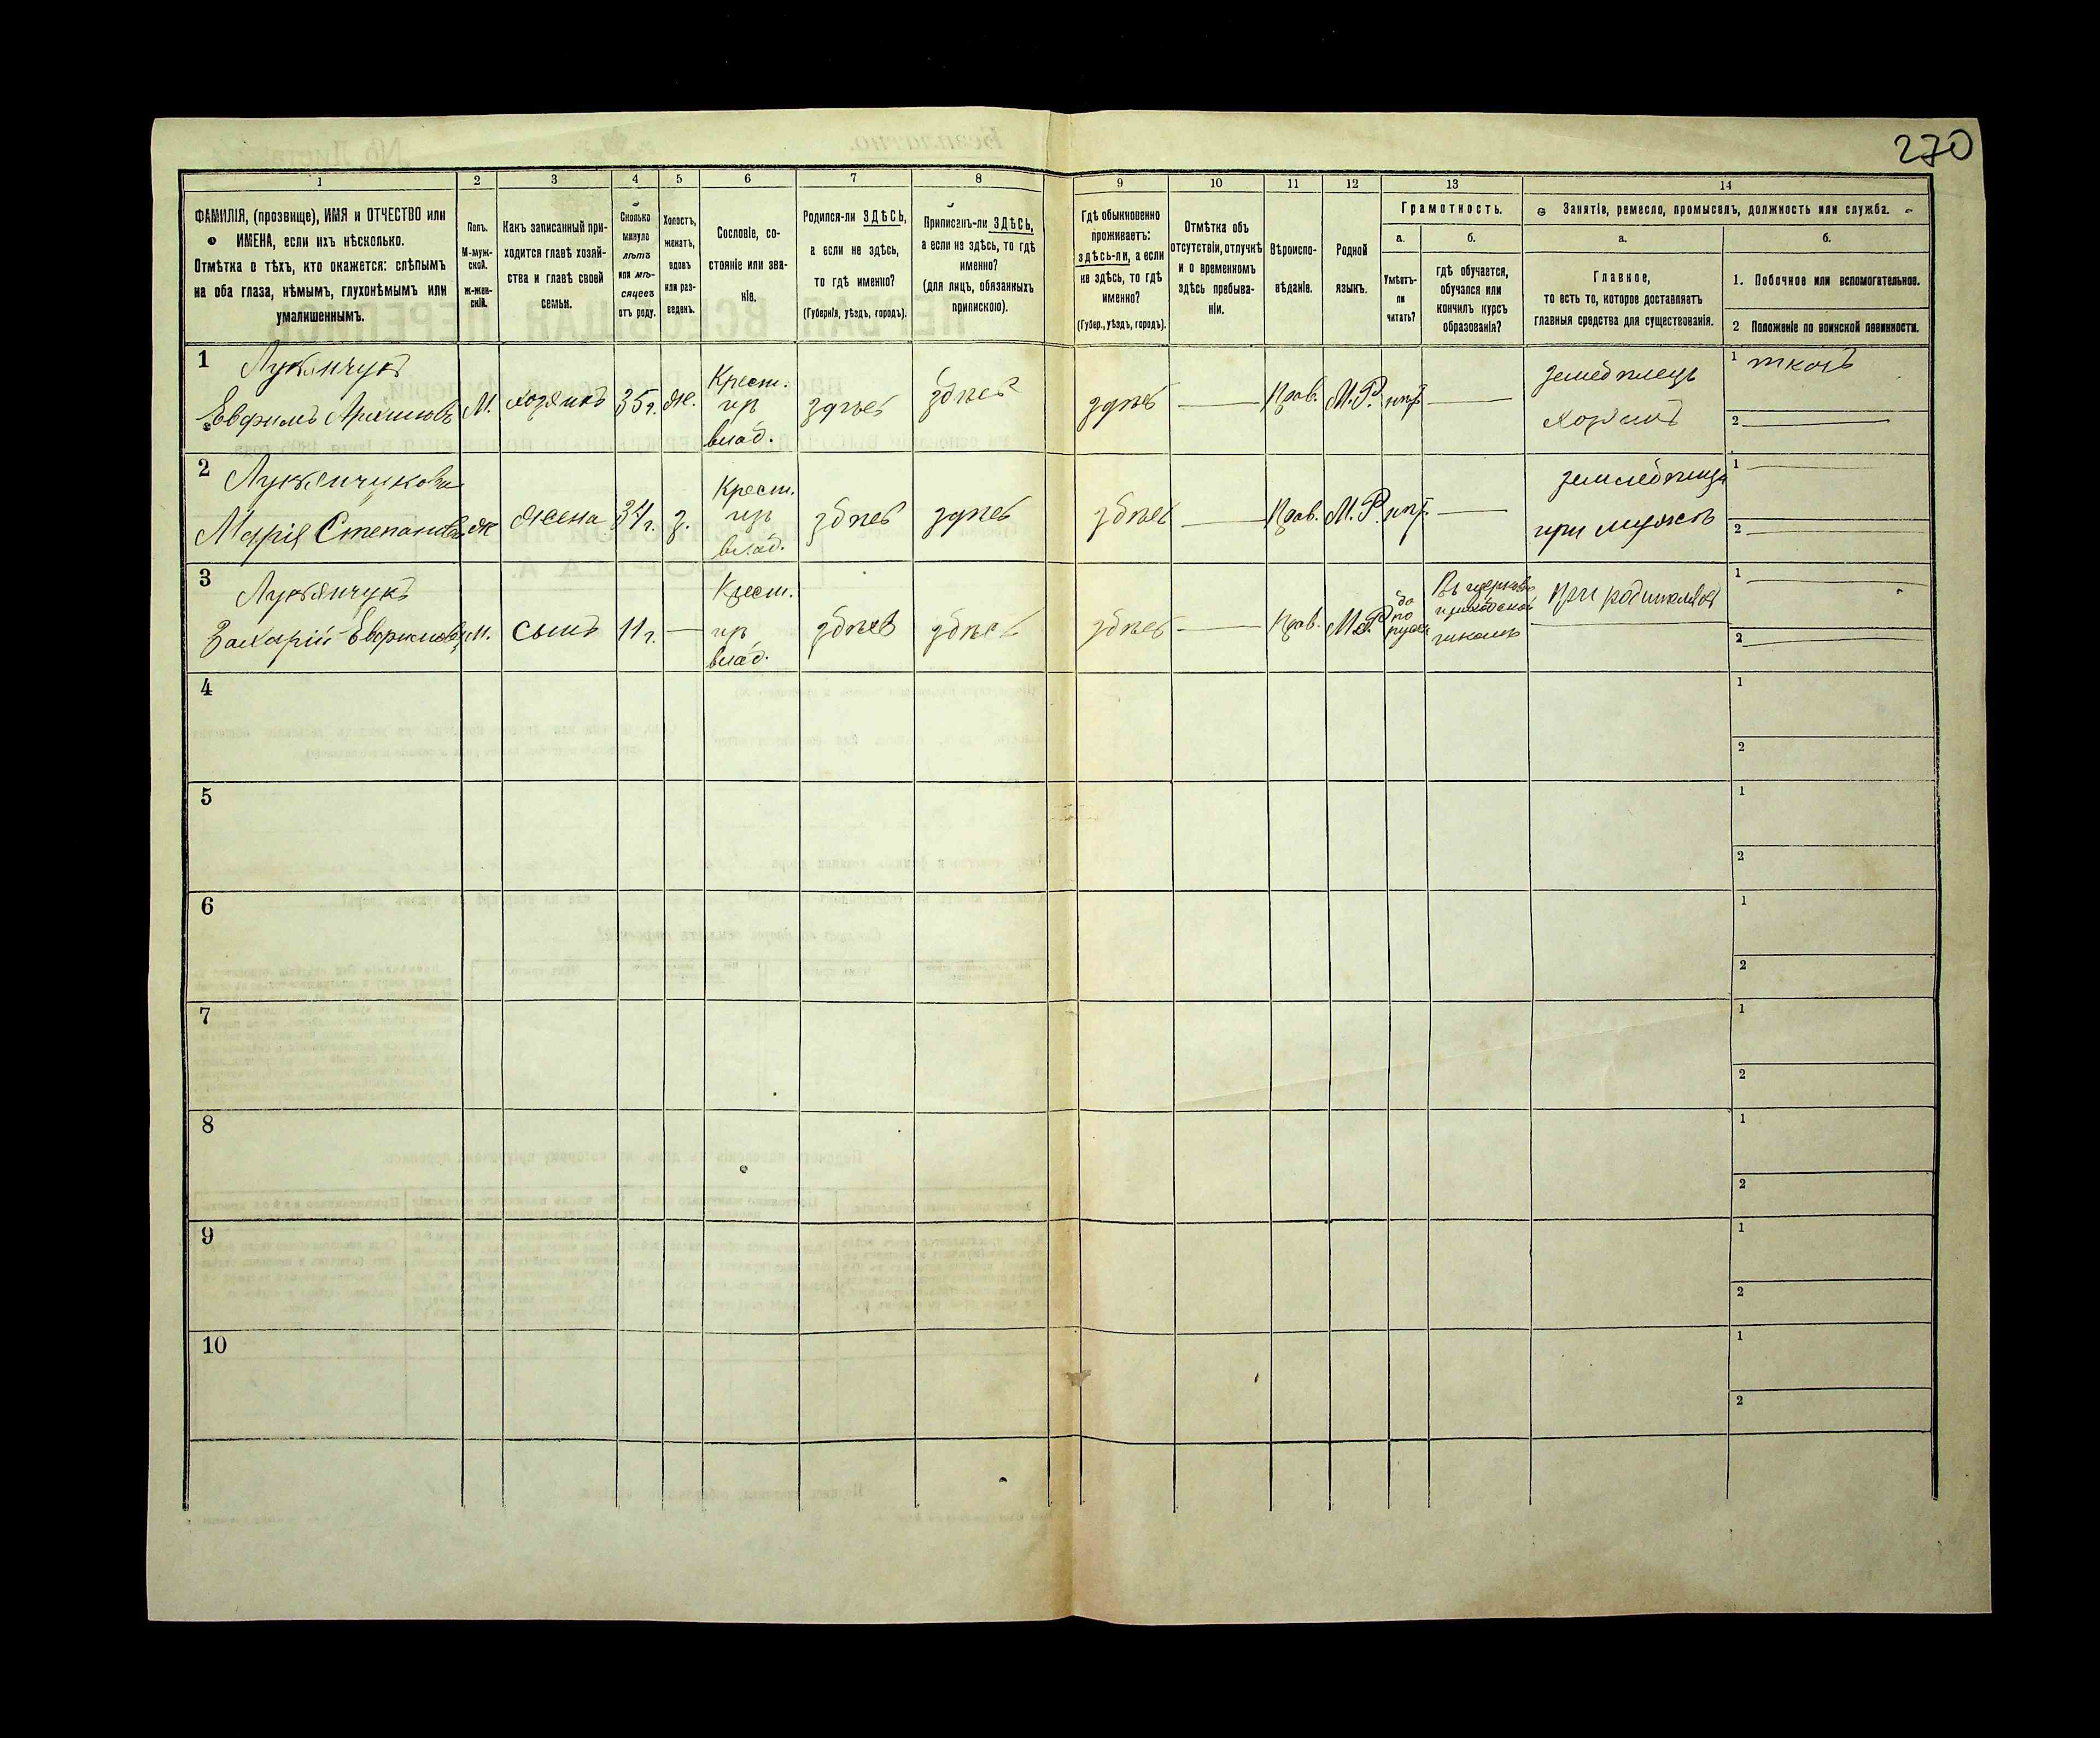 270
1 2 3 4 5 6 7 8 9 10 11 12 13 14
ФАМИЛІЯ, (прозвище), ИМЯ и ОТЧЕСТВО или
ИМЕНА, если ихъ нѣсколько.
Отмѣтка о тѣхъ, кто окажется: слѣпымъ
на оба глаза, нѣмымъ, глухонѣмымъ или
умалишеннымъ.
Полъ.
М-муж-
ской.
ж-жен-
скій.
Какъ записанный при-
ходится главѣ хозяй-
ства и главѣ своей
семьи.
Сколько
минуло
лѣтъ
или мѣ-
сяцевъ
отъ роду.
Холостъ,
женатъ,
вдовъ
или раз-
веденъ.
Сословіе, со-
стояніе или зва-
ніе.
Родился-ли ЗДѢСЬ,
а если не здѣсь,
то гдѣ именно?
(Губернія, уѣздъ, городъ).
Приписанъ-ли ЗДѢСЬ,
а если не здѣсь, то гдѣ
именно?
(для лицъ, обязанныхъ
припискою).
Гдѣ обыкновенно
проживаетъ:
здѣсь-ли, а если
не здѣсь, то гдѣ
именно?
(Губер., уѣздъ, городъ).
Отмѣтка объ
отсутствіи, отлучкѣ
и о временномъ
здѣсь пребыва-
ніи.
Вѣроиспо-
вѣданіе.
Родной
языкъ.
Грамотность.
а.
Умѣетъ-
ли
читать?
б.
гдѣ обучается,
обучался или
кончилъ курсъ
образованія?
Занятіе, ремесло, промыселъ, должность или служба.
а.
Главное,
то есть то, которое доставляетъ
главныя средства для существованія.
б.
1. Побочное или вспомогательное.
2 Положеніе по воинской повинности.
1
Лукьянчукъ
Евфимъ
М.
хозяинъ
35 г.
же.
Крест.
изъ
влад.
здѣсь
здѣсь
здѣсь
Прав.
М. Р.
нѣтъ
земледѣлецъ
хозяинъ
1 ткачъ
2
2
Лукьянчукова
Марія Степановa
ж
жена
34 г.
з.
Крест.
изъ
влад.
здѣсь
здѣсь
здѣсь
Прав.
М. Р.
нѣтъ
при мужѣ
1
2
3
Лукьянчукъ
Захарій Евфимовъ
М.
сынъ
11 г.
Крест.
изъ
влад.
здѣсь
здѣсь
здѣсь
Прав.
М. Р.
да
по
русски
Въ церковно
приходской
школѣ
при родителяхъ
1
2
4
1
2
5
1
2
6
1
2
7
1
2
8
1
2
9
1
2
10
1
2